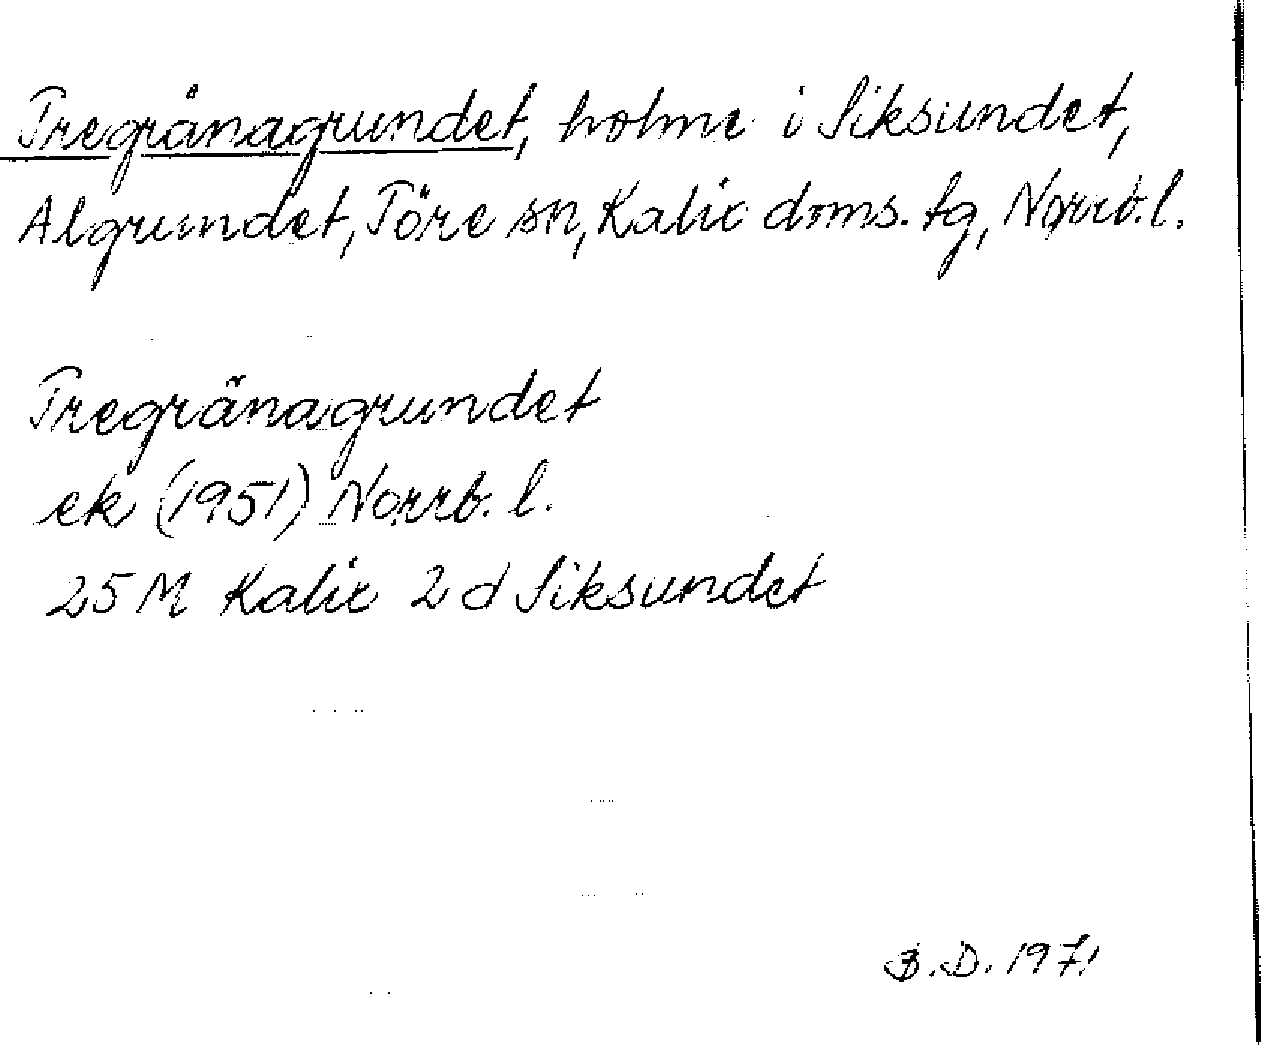 Tregrånagrundet, holme i Siksundet,
Algrundet, Töre sn, Kalix doms. tg, Norrb. l.
Tregränagrundet
ek (1951) Norrb. l.
25 M Kalix 2 d Siksundet
B.D. 1971